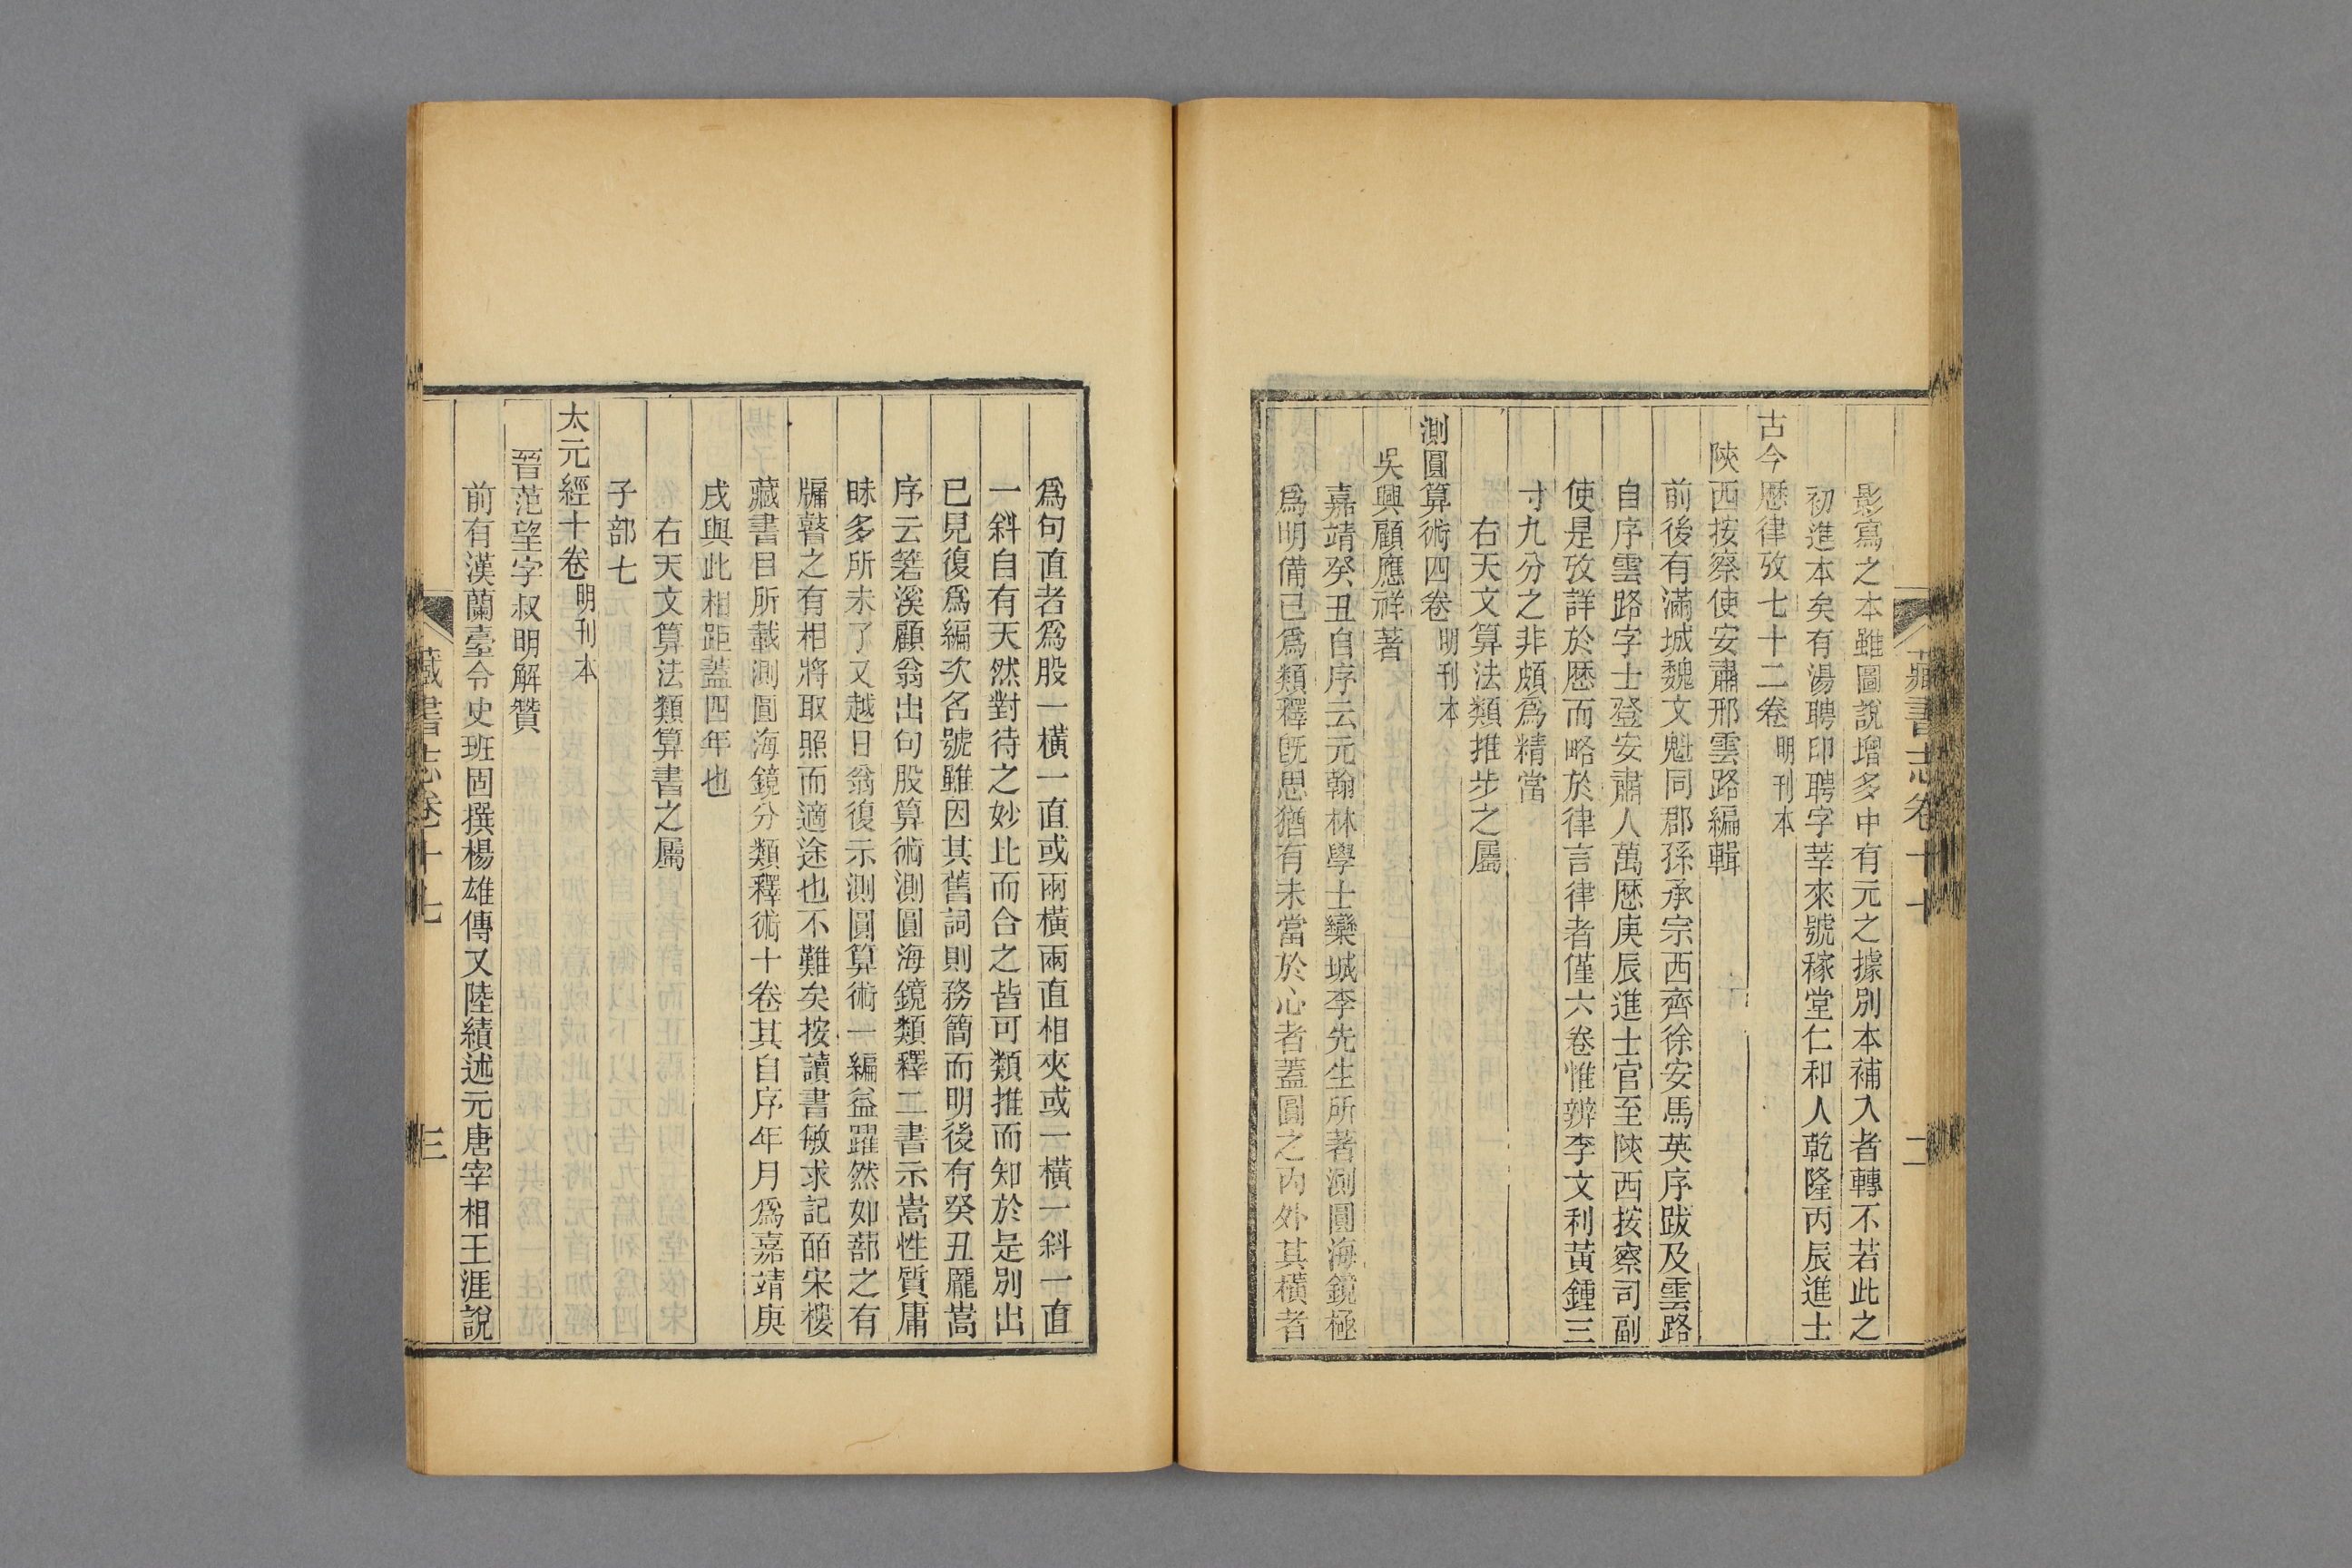 影寫之本雖圖說增多中有元之據別本補入者轉不若此之
初進本矣有湯聘印聘字莘來號稼堂仁和人乾隆丙辰進士
古今歷律攷七十二卷明刊本
陝西按察使安肅邢雲路編輯
前後有滿城魏文魁同郡孫承宗西齊徐安馬英序跋及雲路
自序雲路字士登安肅人萬歷庚辰進士官至陝西按察司副
使是攷詳於歷而略於律言律者僅六卷惟辨李文利黃鍾三
寸九分之非頗爲精當
右天文算法類推步之屬
測圓算術四卷明刊本
吳興顧應祥著
嘉靖癸丑自序云元翰林學士欒城李先生所著測圓海鏡極
爲明備已爲類釋旣思猶有未當於心者蓋圓之內外其橫者
藏書志卷十七
二
爲句直者爲股一橫一直或兩橫兩直相夾或一橫一斜一直
一斜自有天然對待之妙比而合之皆可類推而知於是別出
已見復爲編次名號雖因其舊詞則務簡而明後有癸丑龎嵩
序云箬溪顧翁出句股算術測圓海鏡類釋二書示嵩性質庸
昧多所未了又越日翁復示測圓算術一編益躍然如蔀之有
牖瞽之有相將取照而適途也不難矣按讀書敏求記皕宋樓
藏書目所載測圓海鏡分類釋術十卷其自序年月爲嘉靖庚
戌與此相距蓋四年也
右天文算法類算書之屬
子部七
太元經十卷明刊本
晉范望字叔明解贊
前有漢蘭臺令史班固撰楊雄傳又陸績述元唐宰相王涯說
藏書志卷十七
三